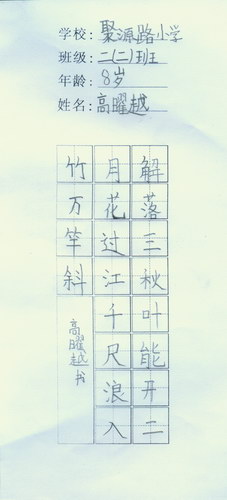 学校: 聚源路小学
班级: 二(二)班
年龄: 8岁
姓名: 高曜越
解落三秋叶能开二
月花过江千尺浪入
竹万竿斜
高曜越书